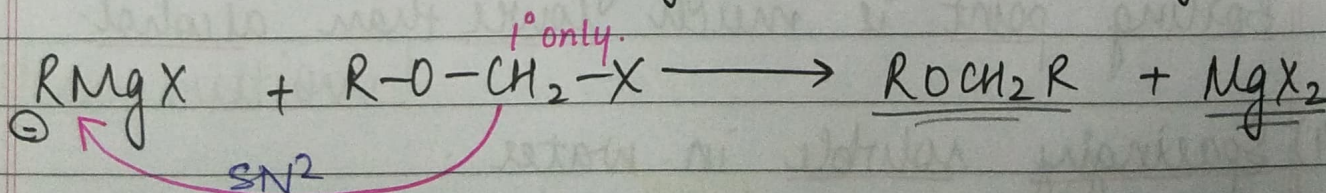 1° only.
RMgX + R-O-CH₂-X ⟶ ROCH₂R + MgX₂
⊖
SN²